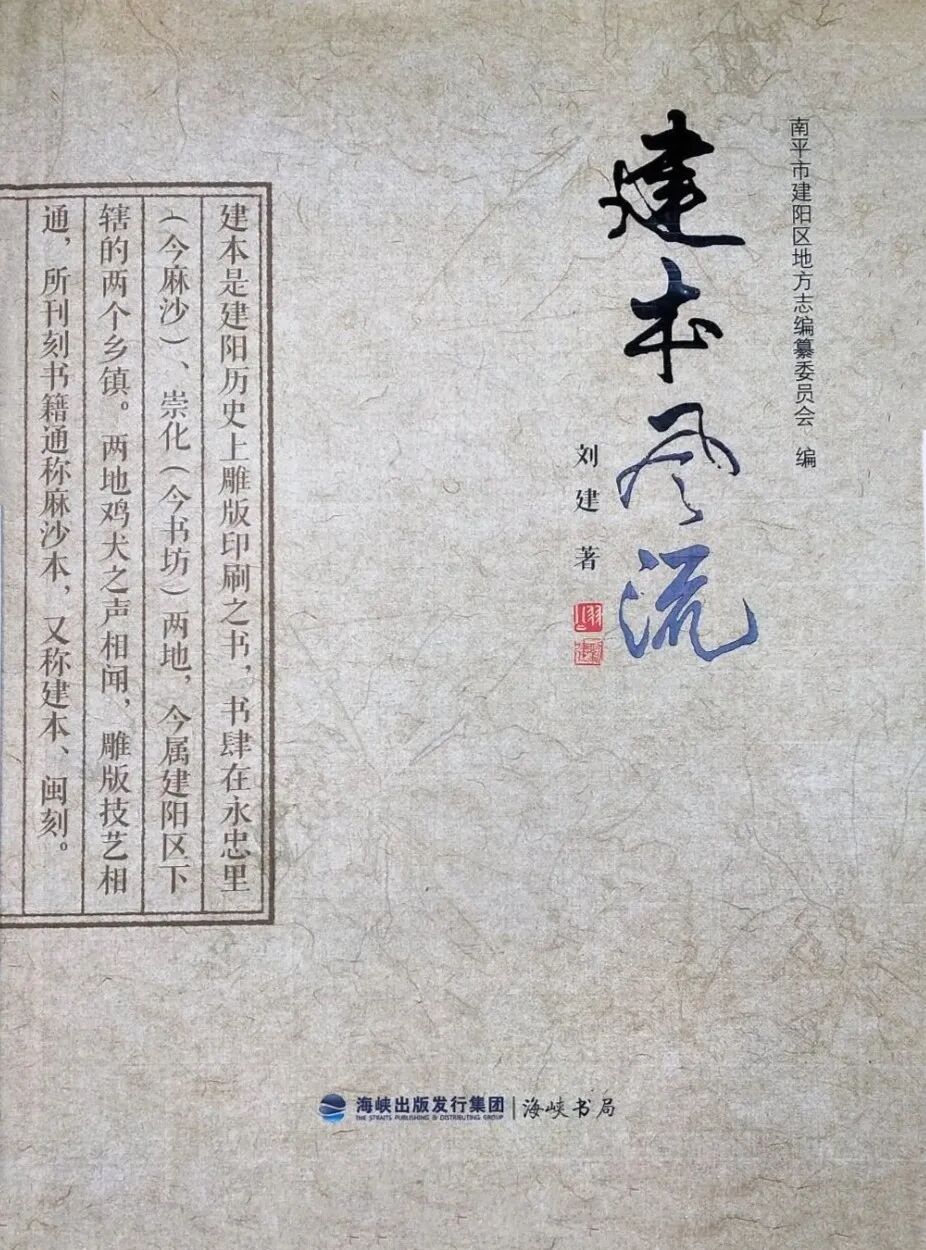 南平市建阳区地方志编纂委员会 编
建本风流
刘建 著
建本是建阳历史上雕版印刷之书，书肆在永忠里
（今麻沙）、崇化（今书坊）两地，今属建阳区下
辖的两个乡镇。两地鸡犬之声相闻，雕版技艺相
通，所刊刻书籍通称麻沙本，又称建本、闽刻。
海峡出版发行集团
THE STRAITS PUBLISHING & DISTRIBUTING GROUP
海峡书局